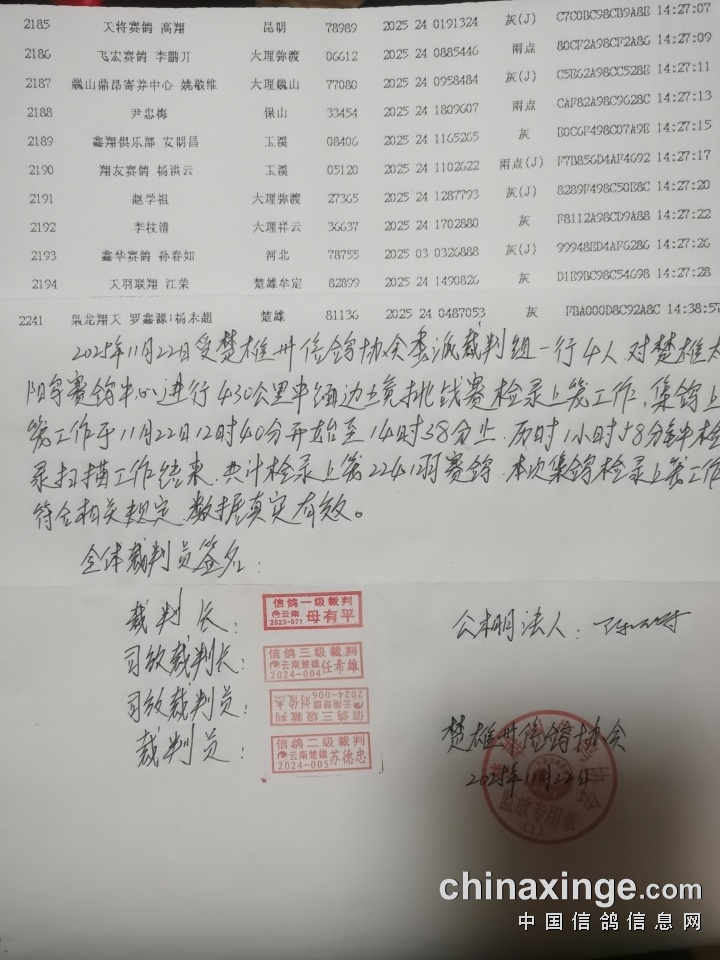 2185 天将赛鸽 高翔 昆明 78989 2025 24 0191324 灰(J) C7C0BC98CB9A8E 14:27:07
2186 飞宏赛鸽 李鹏开 大理弥渡 06612 2025 24 0885446 雨点 80CF2A98CF2A86 14:27:09
2187 巍山鼎昂寄养中心 姚敬维 大理巍山 77080 2025 24 0958484 灰(J) C5E62A98CC528E 14:27:11
2188 尹忠梅 保山 33454 2025 24 1809607 雨点 CAF82A98C9628C 14:27:13
2189 鑫翔俱乐部 安明昌 玉溪 08406 2025 24 1165265 灰 E0C6F498C07A9E 14:27:15
2190 翔友赛鸽 杨洪云 玉溪 05120 2025 24 1102622 雨点(J) F7B856D4AF4692 14:27:17
2191 赵学祖 大理弥渡 27365 2025 24 1287793 灰(J) 8289F498C50E8C 14:27:20
2192 李枝清 大理祥云 36637 2025 24 1702880 灰 F8112A98CD9A88 14:27:22
2193 鑫华赛鸽 孙春如 河北 78755 2025 03 0326888 灰(J) 99948ED4AF6286 14:27:26
2194 天羽联翔 江荣 楚雄牟定 82899 2025 24 1490826 灰 D1E9BC98C54698 14:27:28
2241 枭龙翔天 罗鑫源:杨永超 楚雄 81136 2025 24 0487053 灰 FBA000D8C92A8C 14:38:57
2025年11月22日受楚雄州信鸽协会委派裁判组一行4人对楚雄太
阳鸟赛鸽中心进行430公里中缅边境挑战赛检录上笼工作,集鸽上
笼工作于11月22日12时40分开始至14时38分止,历时1小时58分钟检
录扫描工作结束,共计检录上笼2241羽赛鸽,本次集鸽检录上笼工作
符合相关规定,数据真实有效。
全体裁判员签名:
裁判长: 信鸽一级裁判 云南 2023-071 母有平
公棚法人:
司放裁判长: 信鸽三级裁判 云南楚雄 2024-004
司放裁判员: 信鸽三级裁判 云南楚雄 2024-006
裁判员: 信鸽二级裁判 云南楚雄 2024-005 苏德忠
楚雄州信鸽协会
2025年11月22日
监放专用章
(1)
chinaxinge.com
中国信鸽信息网